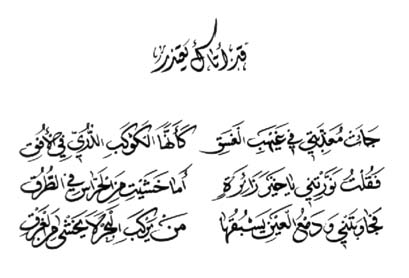 قد أتاك يعتذر
جاءت معذبتي في غيهب الغسق كأنها الكوكب الدري في الأفق
فقلت نورتني يا خير زائرة أما خشيت من الحراس في الطرق
فجاوبتني ودمع العين يسبقها من يركب البحر لا يخشى من الغرق